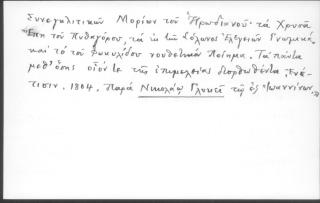 Συνεγλιτικῶν Μορίων τοῦ Ἡρωδιανοῦ· τὰ Χρυσᾶ
Ἔπη τοῦ Πυθαγόρου, τὰ ἐκ τῶν Σόλωνος Ἐλεγειῶν Γνωμικά,
καὶ τὸ τοῦ Φωκυλίδου νουθετικὸν Ποίημα. Τὰ πάντα
μεθ' ὅσης οἷόν τε τῆς ἐπιμελείας διορθωθέντα. Ἐνε-
τίησιν. 1804. Παρὰ Νικολάῳ Γλυκεῖ τῷ ἐξ Ἰωαννίνων.